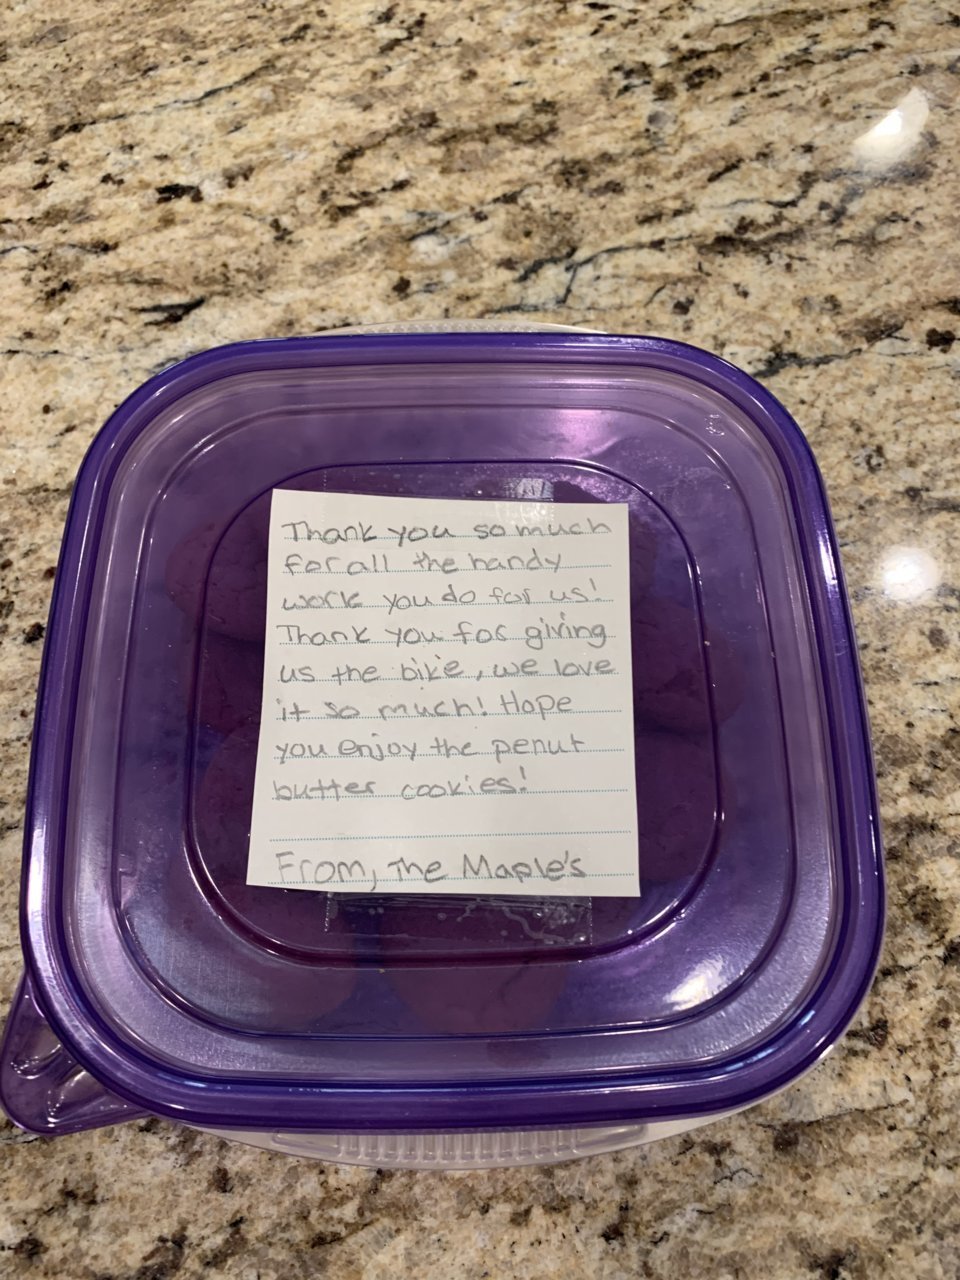 Thank you so much
for all the handy
work you do for us!
Thank you for giving
us the bike, we love
it so much! Hope
you enjoy the penut
butter cookies!
From, The Maple's